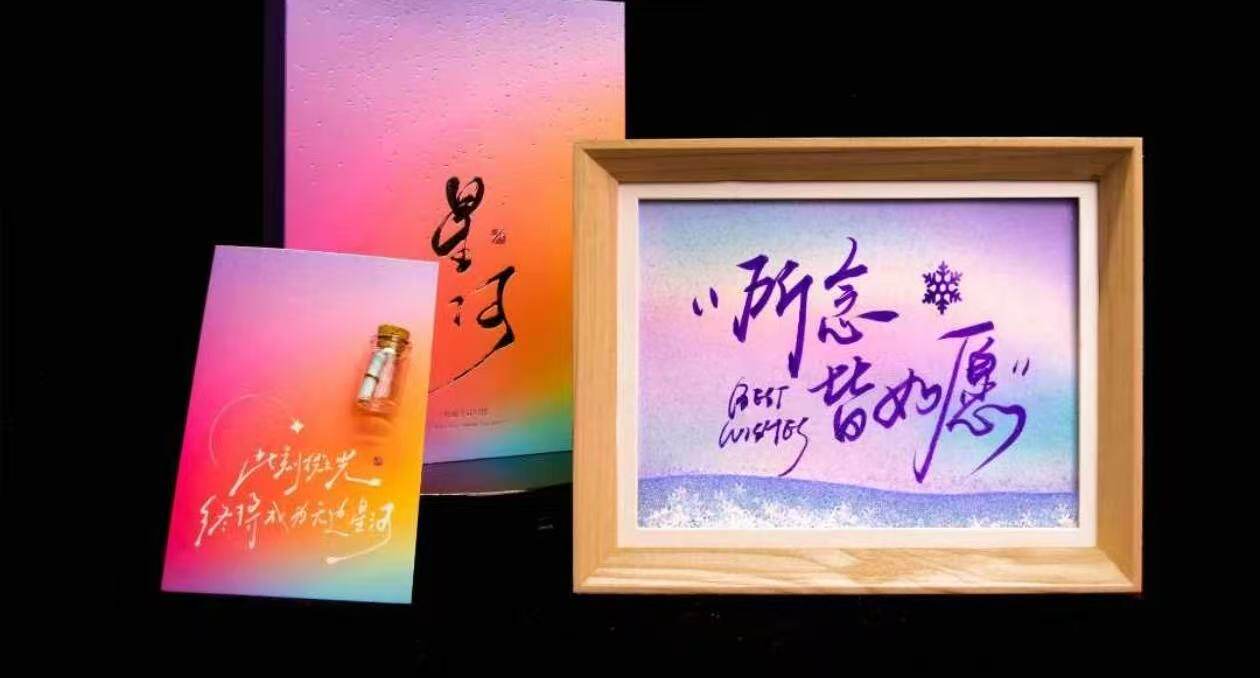 星
河
此刻微光
终成为边星河
“所念
皆如愿”
BEST
WISHES